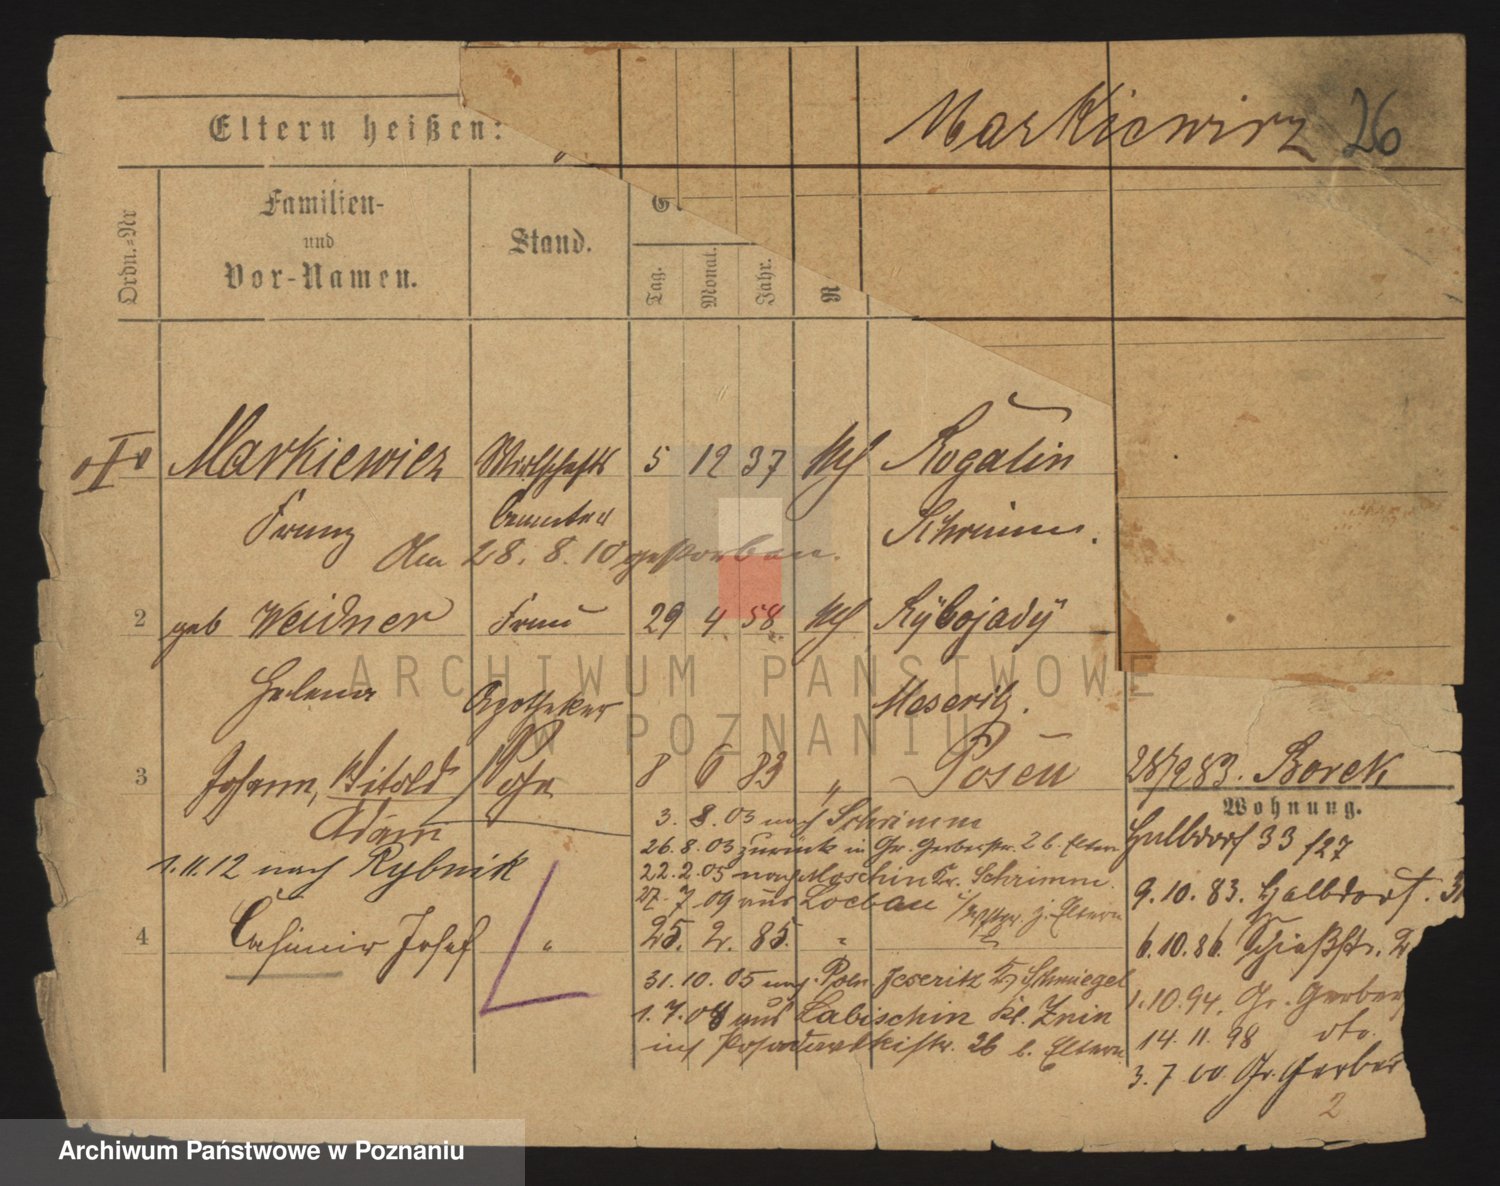 Markiewicz 26
Eltern heißen:
Ordn.-Nr
Familien-
und
Vor-Namen.
Stand.
G
Tag.
Monat.
Jahr.
R
Markiewicz Wirtschafts 5 12 37 Kth Rogalin
Franz beamter Schrimm.
Am 28. 8. 10 gestorben.
2 geb Weidner Frau 29 4 58 Kth Rybojady
Helena Apotheker Meseritz.
3 Johann, Witold 8 6 83 " Posen
Adam
1.11.12 nach Rybnik
3. 8. 03 nach Schrimm
26. 8. 03 zurück in Gr. Gerberstr. 2 b. Eltern
22. 2. 05 nach Moschin Kr. Schrimm.
27. 7. 09 aus Loebau z. Eltern
4 Casimir Josef " 25. 2. 85. "
31. 10. 05 nach Poln Jeseritz Kr Schmiegel
1. 7. 08 aus Labischin Kr. Znin
in Posadowskistr. 26 b. Eltern
28/9 83. Borek
Wohnung.
Halbdorf 33 f27
9. 10. 83. Halbdorf. 3
6. 10. 86. Schießstr. 2
1. 10. 94. Gr. Gerber
14. 11. 98 dto.
3. 7 00. Gr. Gerber
2
ARCHIWUM PAŃSTWOWE
W POZNANIU
Archiwum Państwowe w Poznaniu